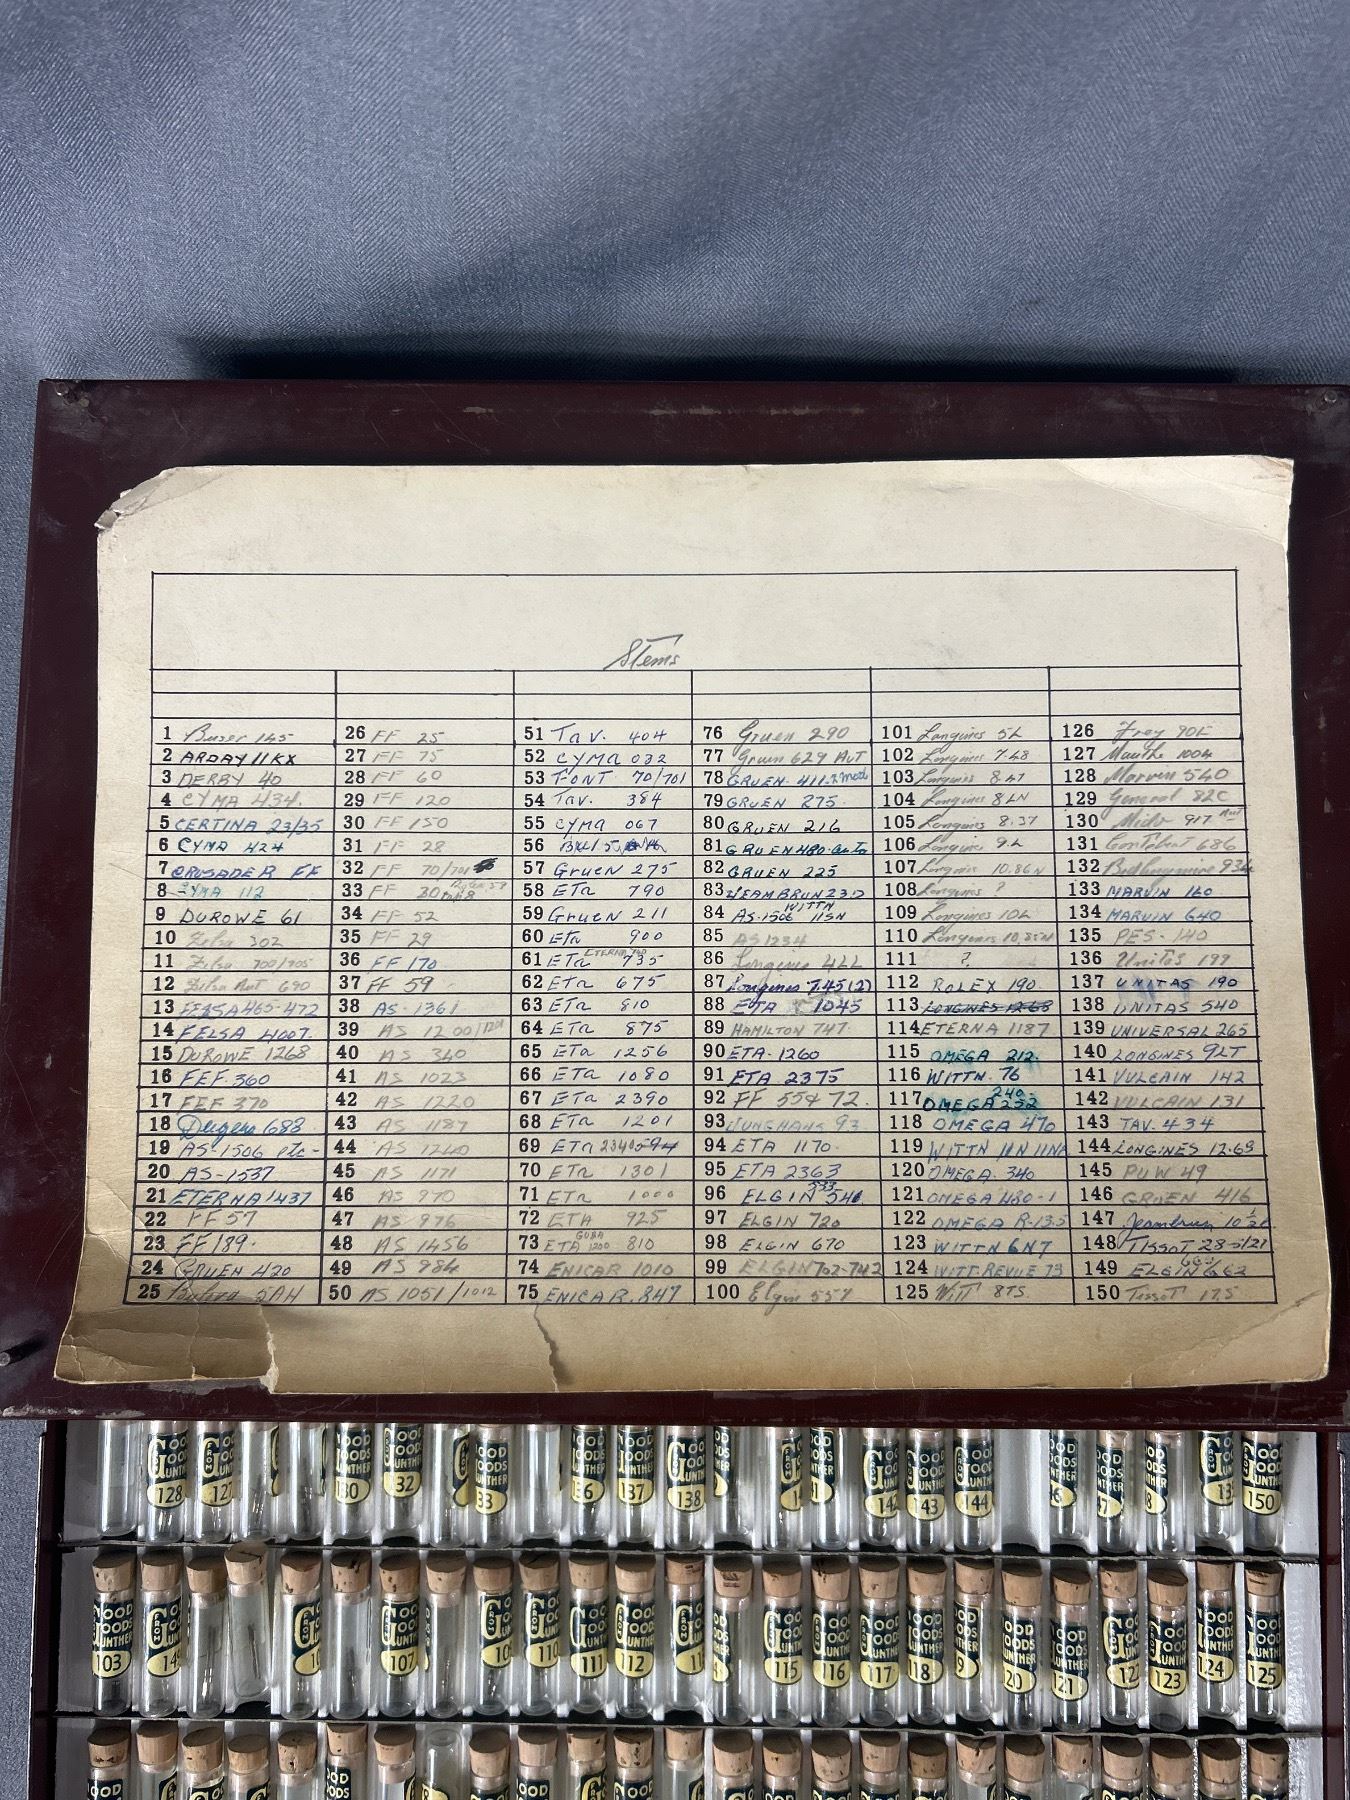 Stems
1 Buser 145
2 ARDAY 11KX
3 DERBY 40
4 CYMA 434.
5 CERTINA 23/35
6 CYMA 424
7 CRUSADER FF
8 CYMA 112
9 DUROWE 61
10 Felsa 302
11 Felsa 700/705
12 Felsa Aut 690
13 FELSA 465-472
14 FELSA 4007.
15 DUROWE 1268
16 FEF 360
17 FEF 370
18 688
19 AS-1506 etc-
20 AS-1537
21 ETERNA 1437
22 FF 57
23 FF 189.
24 GRUEN 420
25 Bulova 5AH
26 FF 25
27 FF 75
28 FF 60
29 FF 120
30 FF 150
31 FF 28
32 FF 70/701
33 FF 30
34 FF 52
35 FF 29
36 FF 170
37 FF 59
38 AS-1361
39 AS 1200/1701
40 AS 340
41 AS 1023
42 AS 1220
43 AS 1187
44 AS 1240
45 AS 1171
46 AS 970
47 AS 976
48 AS 1456
49 AS 984
50 AS 1051/1012
51 Tav. 404
52 CYMA 032
53 FONT 70/701
54 Tav. 384
55 CYMA 067
56
57 Gruen 275
58 ETa 790
59 Gruen 211
60 ETa 900
61 ETa ETERNA 735
62 ETa 675
63 ETa 810
64 ETa 875
65 ETa 1256
66 ETa 1080
67 ETa 2390
68 ETa 1201
69 ETa 2340
70 ETa 1301
71 ETa 1000
72 ETA 925
73 ETA 1200 810
74 ENICAR 1010
75 ENICAR. 847
76 Gruen 290
77 Gruen 629 AUT
78 GRUEN- 411-2 mod
79 GRUEN 275-
80 GRUEN 216
81 GRUEN 480-auto
82 GRUEN 225
83 JEAMBRUN 23D
84 AS-1506 WITTN 11SN
85 AS 1234
86 Longines 4LL
87 Longines 7.45(2)
88 ETA 1045
89 HAMILTON 747.
90 ETA-1260
91 ETA 2375
92 FF 554 72.
93 JUNGHANS 93
94 ETA 1170.
95 ETA 2363
96 ELGIN 533 546.
97 ELGIN 720
98 ELGIN 670
99 ELGIN 702-742
100 Elgin 557
101 Longines 5L
102 Longines 7.48
103 Longines 8.47
104 Longines 8LN
105 Longines 8.37
106 Longines 9L
107 Longines 10.86N
108 Longines ?
109 Longines 10L
110 Longines
111 ?
112 ROLEX 190
113 LONGINES 1268
114 ETERNA 1187
115 OMEGA 212.
116 WITTN. 76
117 OMEGA 240- 252
118 OMEGA 470
119 WITTN 11N 11NA
120 OMEGA. 340
121 OMEGA 480-1
122 OMEGA R-13.5
123 WITTN 6N7
124 WITT REVUE 73
125 WITT 8TS.
126 Frey 90E
127 Mauthe 1004
128 Marvin 540
129 General 82C
130 Mido 917 Aut
131 Gontebut 686
132 934
133 MARVIN 160
134 MARVIN 640
135 PES- 140
136 Unitas 199
137 UNITAS 190
138 UNITAS 540
139 UNIVERSAL 265
140 LONGINES 9LT
141 VULCAIN 142
142 VULCAIN 131
143 TAV. 434
144 LONGINES 12.68
145 PUW 49
146 GRUEN 416
147 Jeambrun 10½
148 TISSOT 28-5/21
149 ELGIN 662
150 Tissot 17.5
128 127 130 132 33 136 137 138 142 143 144 150
103 107 110 111 112 115 116 117 118 120 121 122 123 124 125
GOOD GOODS FROM GUNTHER